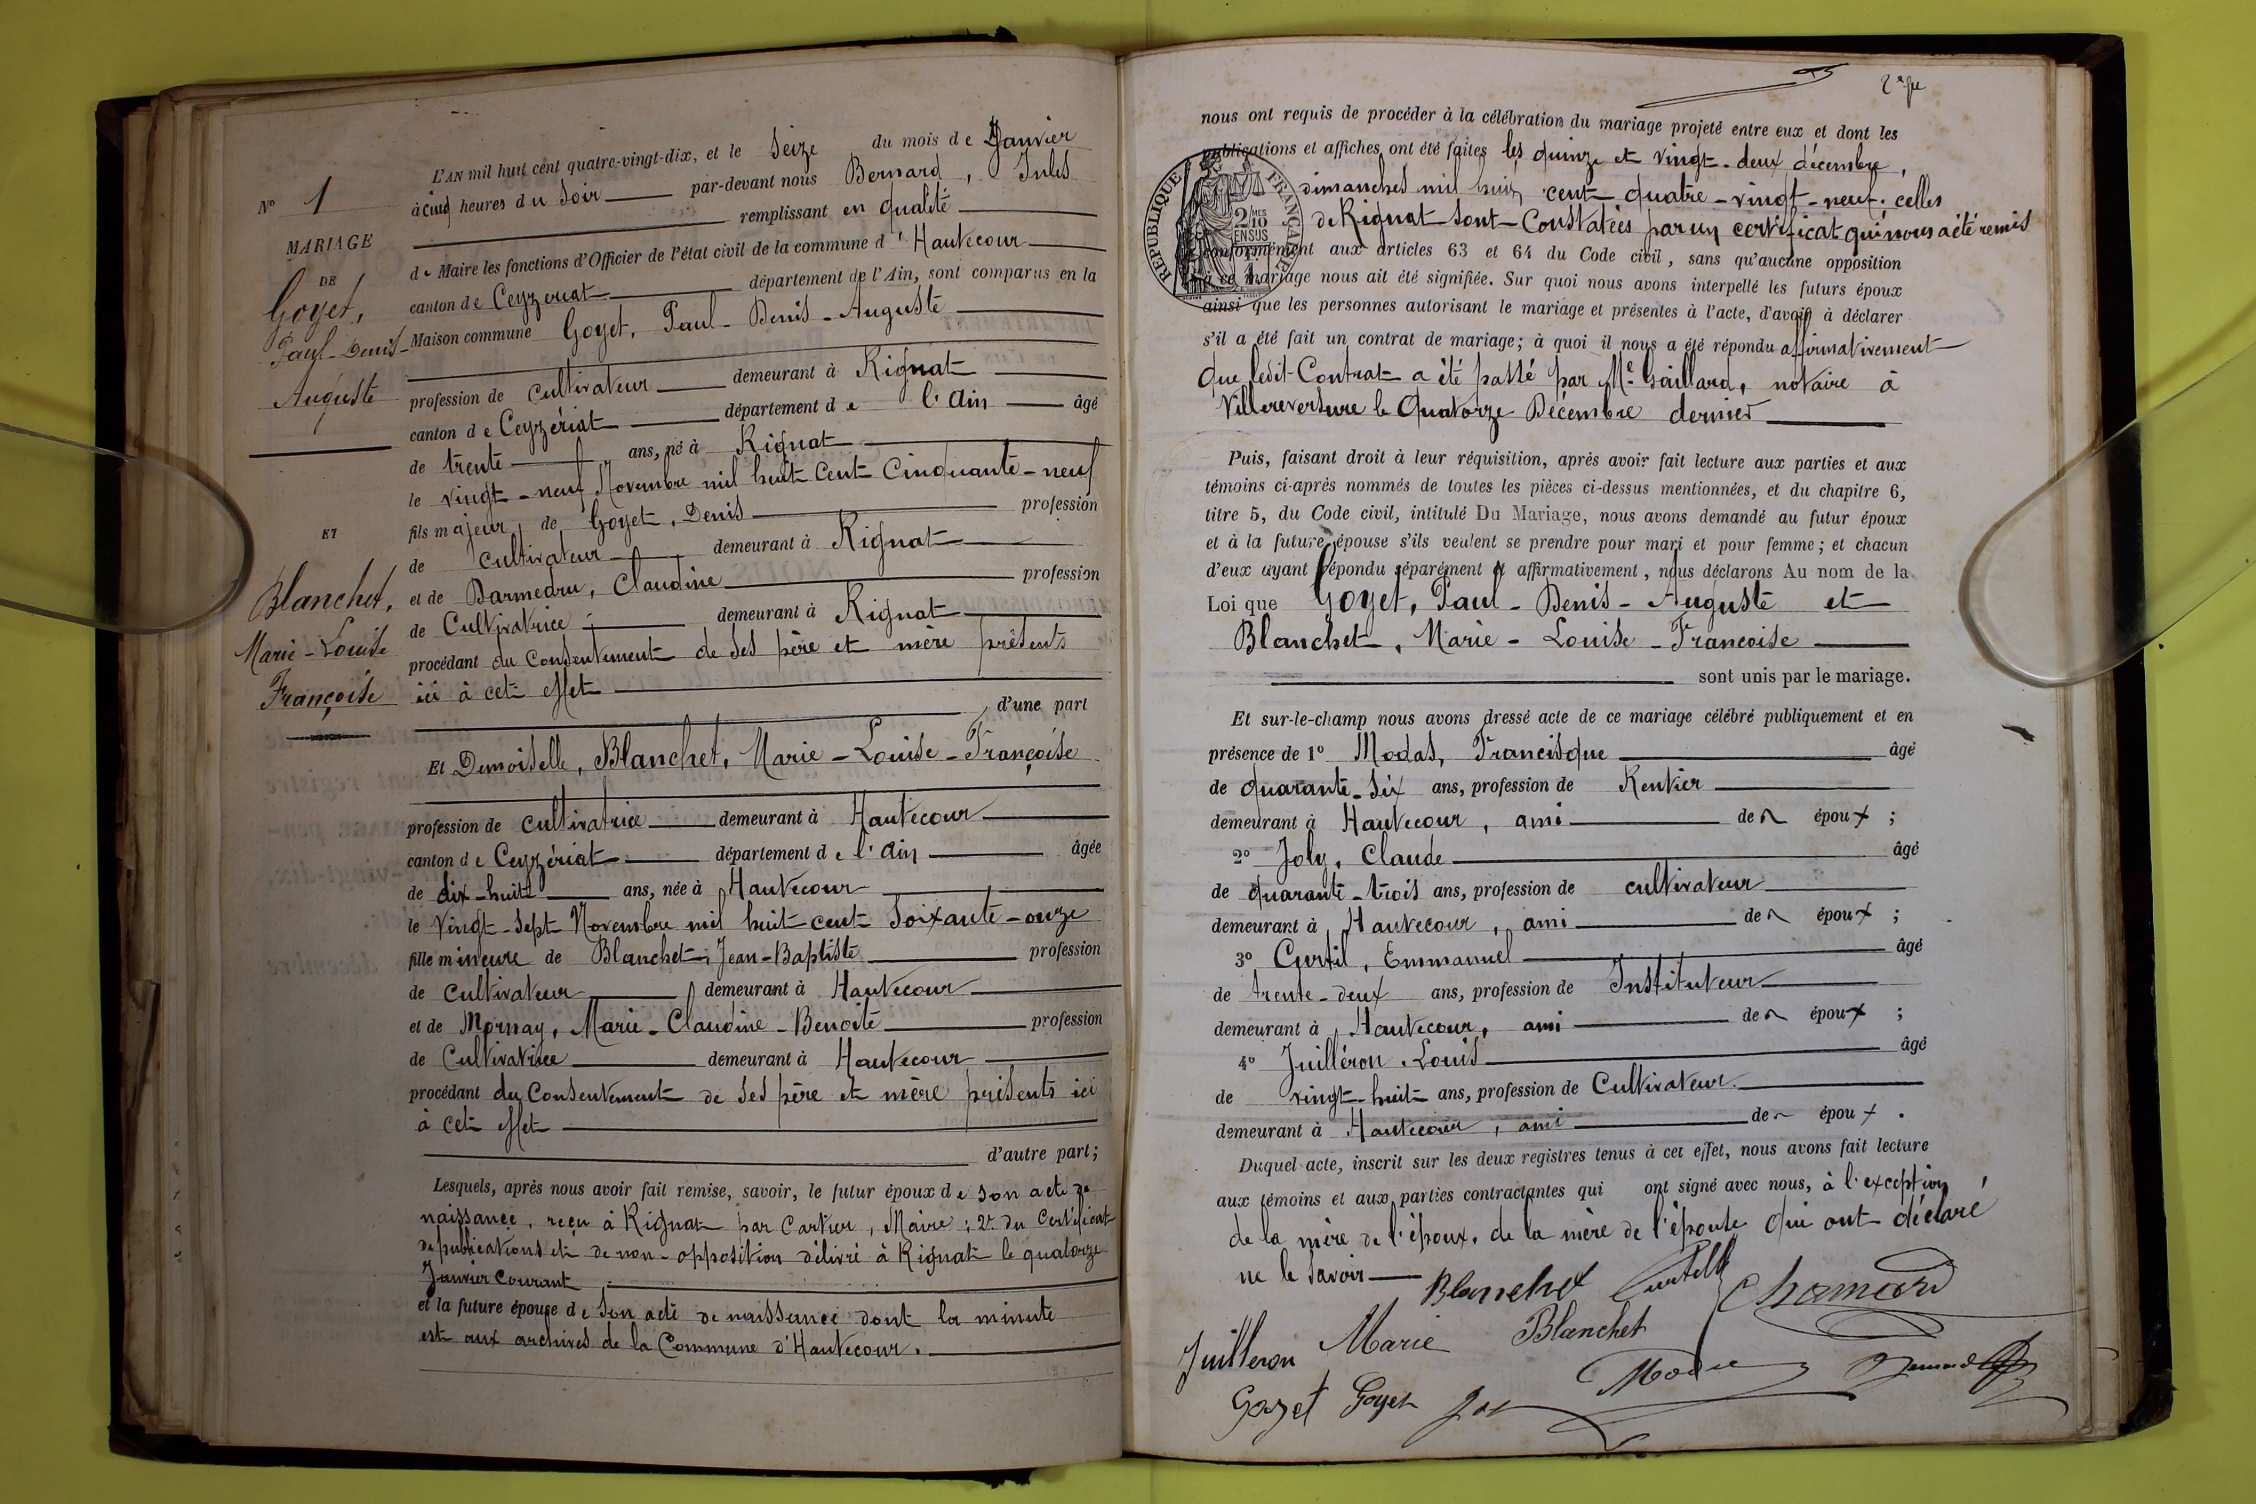 N° 1
MARIAGE
DE
Goyet,
Paul-Denis-
Auguste
ET
Blanchet,
Marie-Louise
Françoise
L'AN mil huit cent quatre-vingt-dix, et le Seize du mois de Janvier
à cinq heures du Soir par-devant nous Bernard, Jules
remplissant en qualité
de Maire les fonctions d'Officier de l'état civil de la commune d'Hautecour
canton de Ceyzeriat département de l'Ain, sont comparus en la
Maison commune Goyet, Paul-Denis-Auguste
profession de cultivateur demeurant à Rignat
canton de Ceyzériat département de l'Ain âgé
de trente ans, né à Rignat
le vingt-neuf Novembre mil huit cent Cinquante-neuf
fils majeur de Goyet, Denis profession
de cultivateur demeurant à Rignat
et de Darmedru, Claudine profession
de Cultivatrice demeurant à Rignat
procédant du Consentement de ses père et mère présents
ici à cet effet
d'une part
Et Demoiselle, Blanchet, Marie-Louise-Françoise
profession de cultivatrice demeurant à Hautecour
canton de Ceyzériat département de l'Ain âgée
de dix-huit ans, née à Hautecour
le Vingt-Sept Novembre mil huit-cent Soixante-onze
fille mineure de Blanchet, Jean-Baptiste profession
de cultivateur demeurant à Hautecour
et de Mornay, Marie-Claudine-Benoite profession
de Cultivatrice demeurant à Hautecour
procédant du Consentement de ses père et mère présents ici
à cet effet
d'autre part;
Lesquels, après nous avoir fait remise, savoir, le futur époux de son acte de
naissance, reçu à Rignat par Cartier, Maire; 2° du Certificat
de publications et de non-opposition délivré à Rignat le quatorze
Janvier courant
et la future épouse de son acte de naissance dont la minute
est aux archives de la Commune d'Hautecour.
nous ont requis de procéder à la célébration du mariage projeté entre eux et dont les
publications et affiches ont été faites les quinze et vingt-deux décembre,
dimanches mil huit cent quatre-vingt-neuf. celles
de Rignat sont Constatées par un certificat qui nous a été remis
RÉPUBLIQUE FRANÇAISE
2/10 MES
EN SUS
conformément aux articles 63 et 64 du Code civil, sans qu'aucune opposition
à ce mariage nous ait été signifiée. Sur quoi nous avons interpellé les futurs époux
ainsi que les personnes autorisant le mariage et présentes à l'acte, d'avoir à déclarer
s'il a été fait un contrat de mariage; à quoi il nous a été répondu affirmativement
que ledit-Contrat a été passé par Me Gaillard, notaire à
Villereversure le Quatorze Décembre dernier
Puis, faisant droit à leur réquisition, après avoir fait lecture aux parties et aux
témoins ci-après nommés de toutes les pièces ci-dessus mentionnées, et du chapitre 6,
titre 5, du Code civil, intitulé Du Mariage, nous avons demandé au futur époux
et à la future épouse s'ils veulent se prendre pour mari et pour femme; et chacun
d'eux ayant répondu séparément et affirmativement, nous déclarons Au nom de la
Loi que Goyet, Paul-Denis-Auguste et
Blanchet, Marie-Louise-Francoise
sont unis par le mariage.
Et sur-le-champ nous avons dressé acte de ce mariage célébré publiquement et en
présence de 1° Modas, Francisque âgé
de quarante-six ans, profession de Rentier
demeurant à Hautecour, ami de époux;
2° Joly, Claude âgé
de quarante-trois ans, profession de cultivateur
demeurant à Hautecour, ami de époux;
3° Curtil, Emmanuel âgé
de trente-deux ans, profession de Instituteur
demeurant à Hautecour, ami de époux;
4° Juilléron, Louis âgé
de vingt-huit ans, profession de Cultivateur
demeurant à Hautecour, ami de époux.
Duquel acte, inscrit sur les deux registres tenus à cet effet, nous avons fait lecture
aux témoins et aux parties contractantes qui ont signé avec nous, à l'exception
de la mère de l'époux, de la mère de l'épouse qui ont déclaré
ne le savoir
Blanchet Curtil Chamard
Juilleron Marie Blanchet
Goyet Goyet